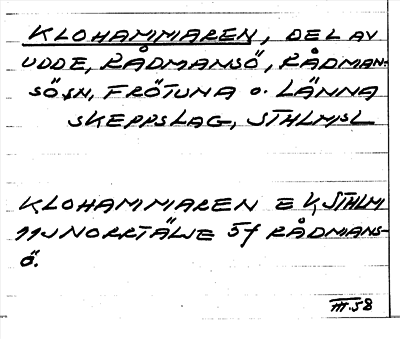 KLOHAMMAREN, DEL AV
UDDE, RÅDMANSÖ, RÅDMAN-
SÖ SN, FRÖTUNA o. LÄNNA
SKEPPSLAG, STHLMSL
KLOHAMMAREN E K, STHLM
11J NORRTÄLJE 5f RÅDMANS-
Ö.
III.58